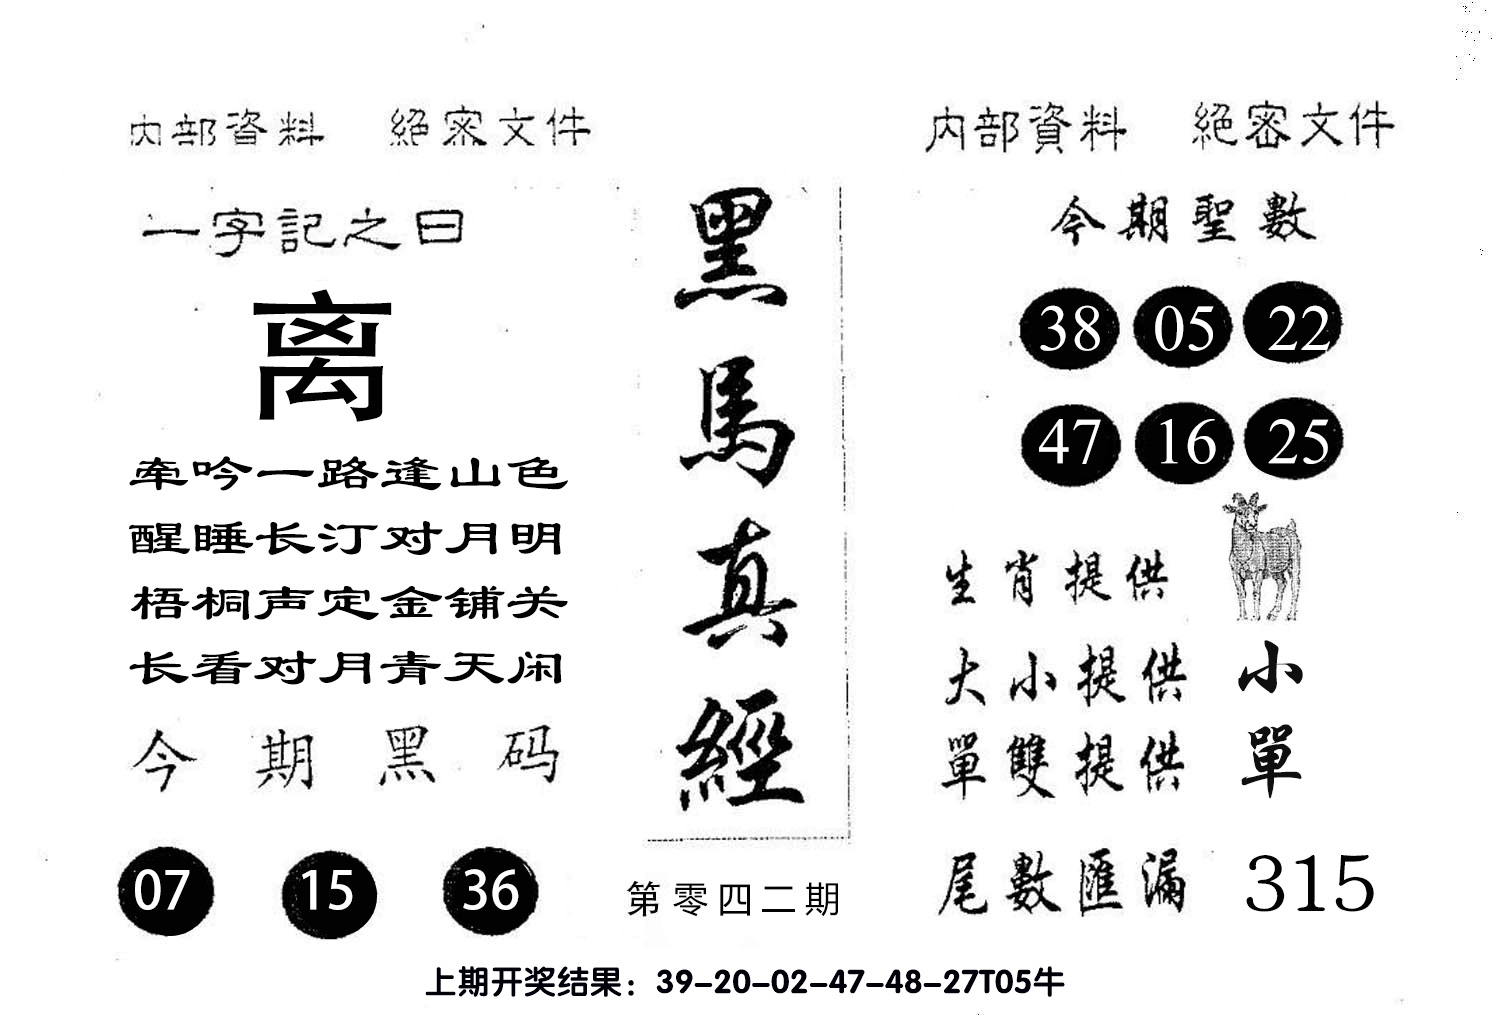 内部資料 絕密文件
一字記之曰
离
牵吟一路逢山色
醒睡长汀对月明
梧桐声定金铺关
长看对月青天闲
今期黑码
07 15 36
黑馬真經
第零四二期
内部資料 絕密文件
今期聖數
38 05 22
47 16 25
生肖提供
大小提供 小
單雙提供 單
尾數匯漏 315
上期开奖结果：39-20-02-47-48-27T05牛